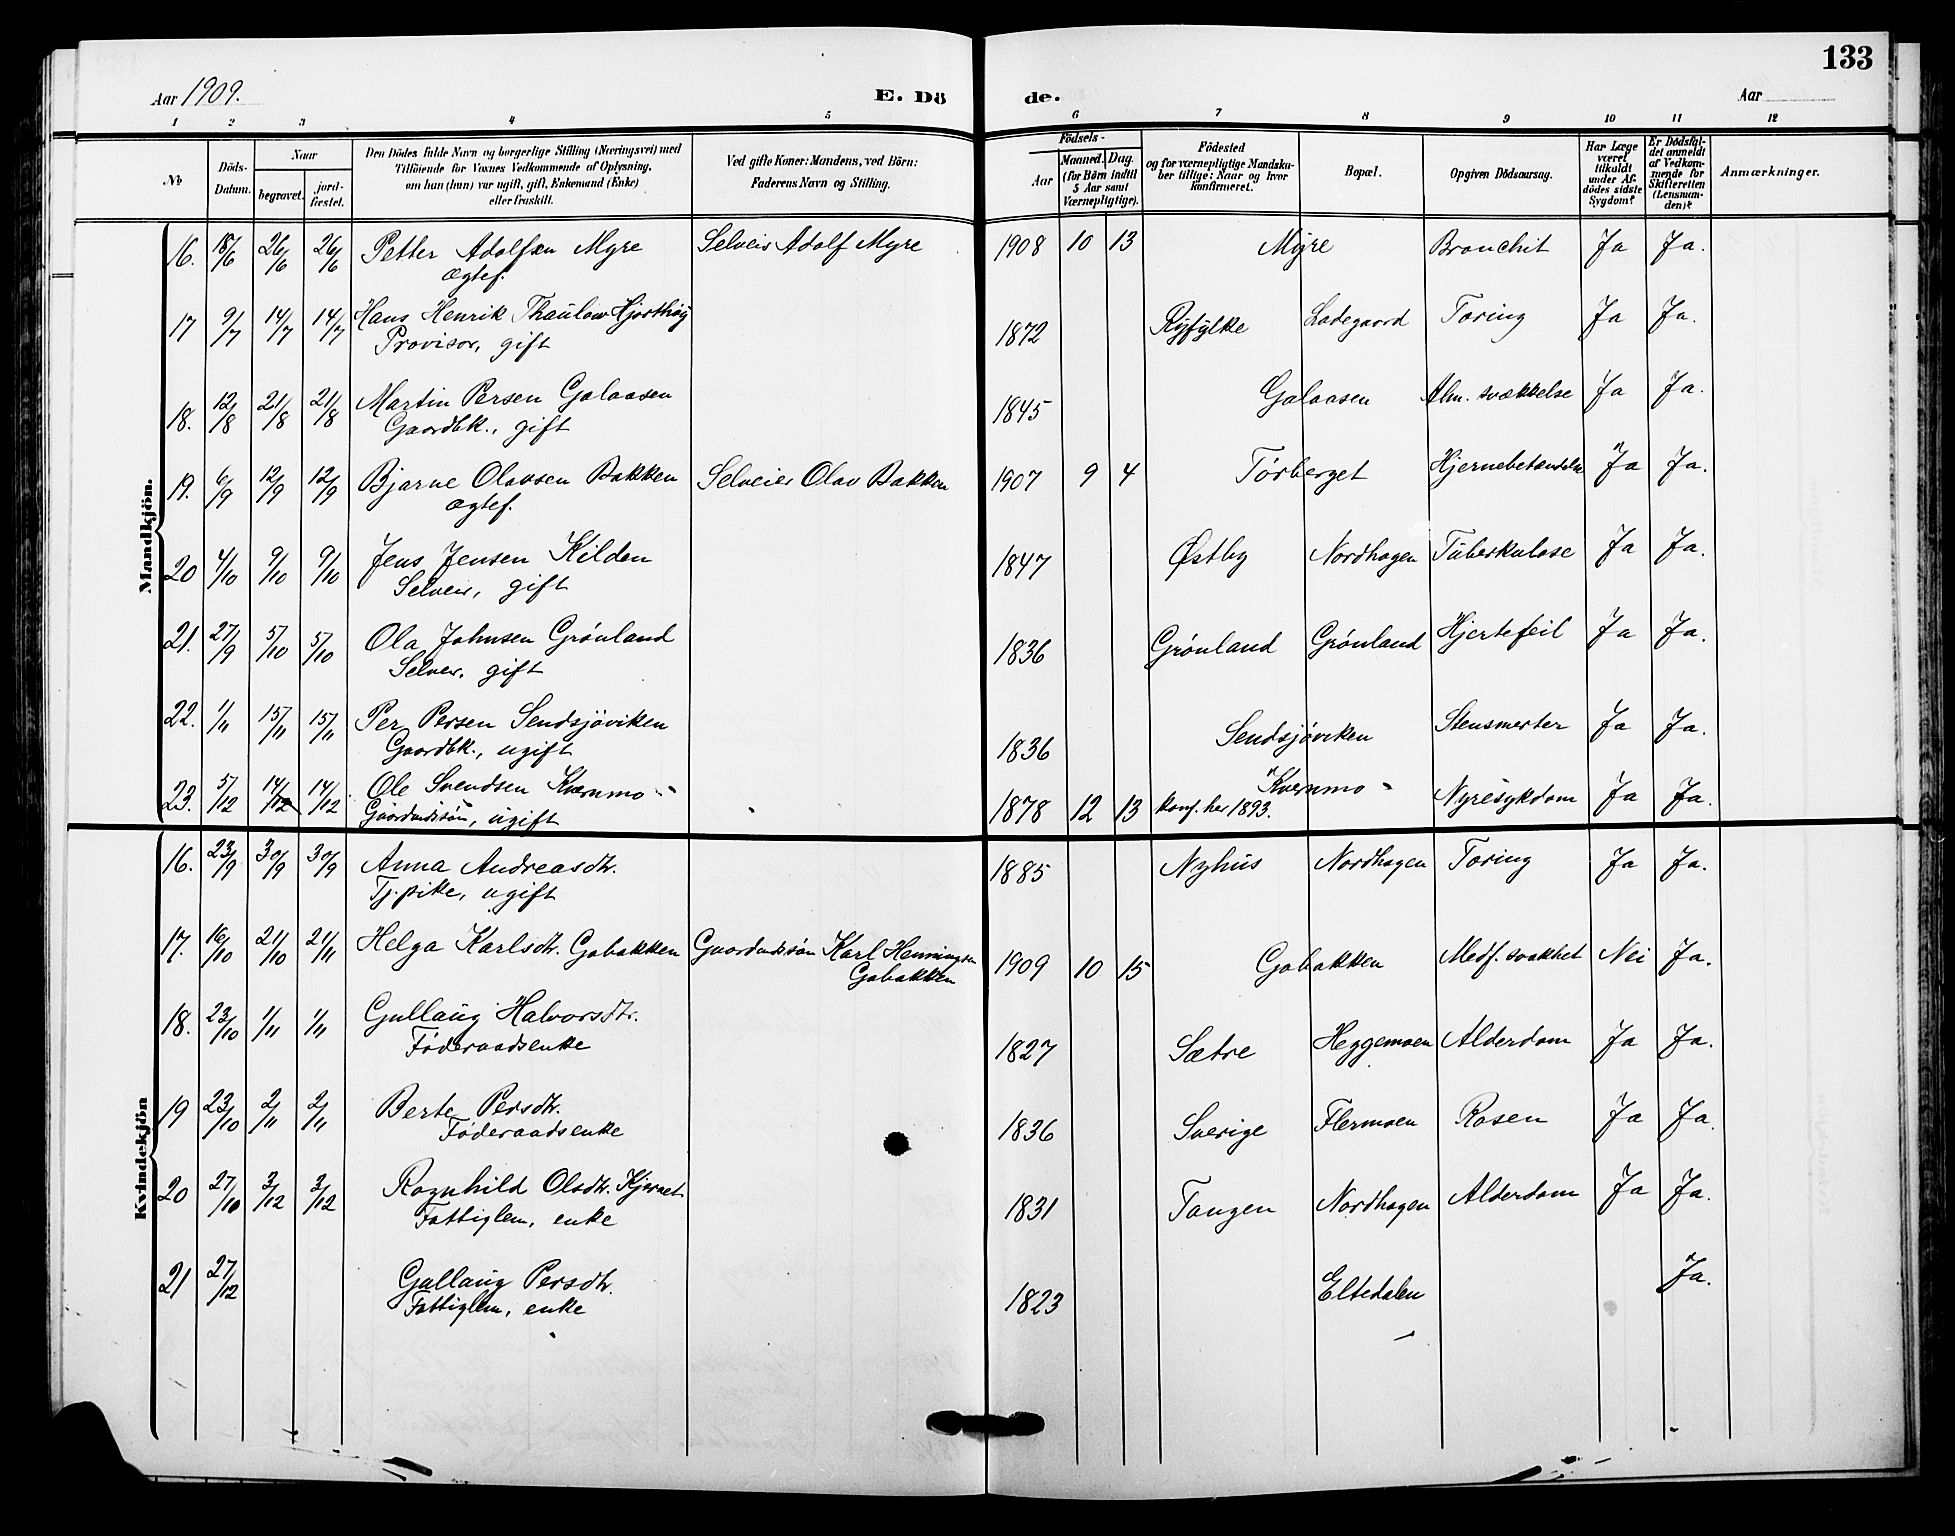 133
Aar 1909. E. Dö de. Aar
1 2 3 4 5 6 7 8 9 10 11 12
№ Döds-Datum. Naar begravet. jord-fæstet. Den Dödes fulde Navn og borgerlige Stilling (Næringsvei) med Tilföiende for Voxnes Vedkommende af Oplysning, om han (hun) var ugift, gift, Enkemand (Enke) eller fraskilt. Ved gifte Koner: Mandens, ved Börn: Faderens Navn og Stilling. Födsels- Aar Maaned. Dag. (for Börn indtil 5 Aar samt Værnepligtige). Födested og for værnepligtige Mandskaber tillige: Naar og hvor konfirmeret. Bopæl. Opgiven Dödsaarsag. Har Læge været tilkaldt under Afdödes sidste Sygdom? Er Dödsfaldet anmeldt af Vedkommende for Skifteretten (Lensmanden)? Anmærkninger.
Mandkjön.
16. 18/6 26/6 26/6 Petter Adolfsen Myre Selveir Adolf Myre 1908 10 13 Myre Bronchit Ja Ja.
Ægtef.
17 9/7 14/7 14/7 Hans Henrik Thaulow Hjorthöy 1872 Ryfylke Ladegaard Tæring Ja Ja.
Provisor, gift
18. 12/8 21/8 21/8 Martin Persen Galaasen 1845 Galaasen Alm. svækkelse Ja Ja.
Gaardbk., gift
19. 6/9 12/9 12/9 Bjarne Olavsen Bakken Selveier Olav Bakken 1907 9 4 Tørberget Hjernebetændelse Ja Ja.
Ægtef.
20 4/10 9/10 9/10 Jens Jensen Kilden 1847 Østby Nordhagen Tuberkulose Ja Ja.
Selveir, gift
21. 27/9 5/10 5/10 Ola Johnsen Grönland 1836 Grönland Grönland Hjertefeil Ja Ja.
Selveir. gift
22. 1/11 15/11 15/11 Per Persen Sendsjöviken 1836 Sendsjöviken Ja Ja.
Gaardbk., ugift
23. 5/12 14/12 14/12 Ole Svendsen Kvernmo 1878 12 13 Kvernmo Nyresykdom Ja Ja.
Gaardmdssön, ugift konf. her 1893.
Kvindekjön
16. 23/9 30/9 30/9 Anna Andreasdtr. 1885 Nyhus Nordhagen Tæring Ja Ja.
Tj.pike, ugift
17. 16/10 21/10 21/11 Helga Karlsdtr. Gobakken Gaardmdssön Karl Henningsen Gobakken 1909 10 15 Gobakken Medf. svakhet Nei Ja.
18. 23/10 1/11 1/11 Gullaug Halvorsdtr. 1827 Sætre Heggemoen Alderdom Ja Ja.
Föderaadsenke
19 23/10 2/11 2/11 Berte Persdtr. 1836 Sverige Flermoen Rosen Ja Ja.
Föderaadsenke
20 27/10 3/12 3/12 Ragnhild Olsdtr. Kjernet 1831 Tangen Nordhagen Alderdom Ja Ja.
Fattiglem, enke
21 27/12 Gullaug Persdtr. 1823 Eltedalen Ja.
Fattiglem, enke